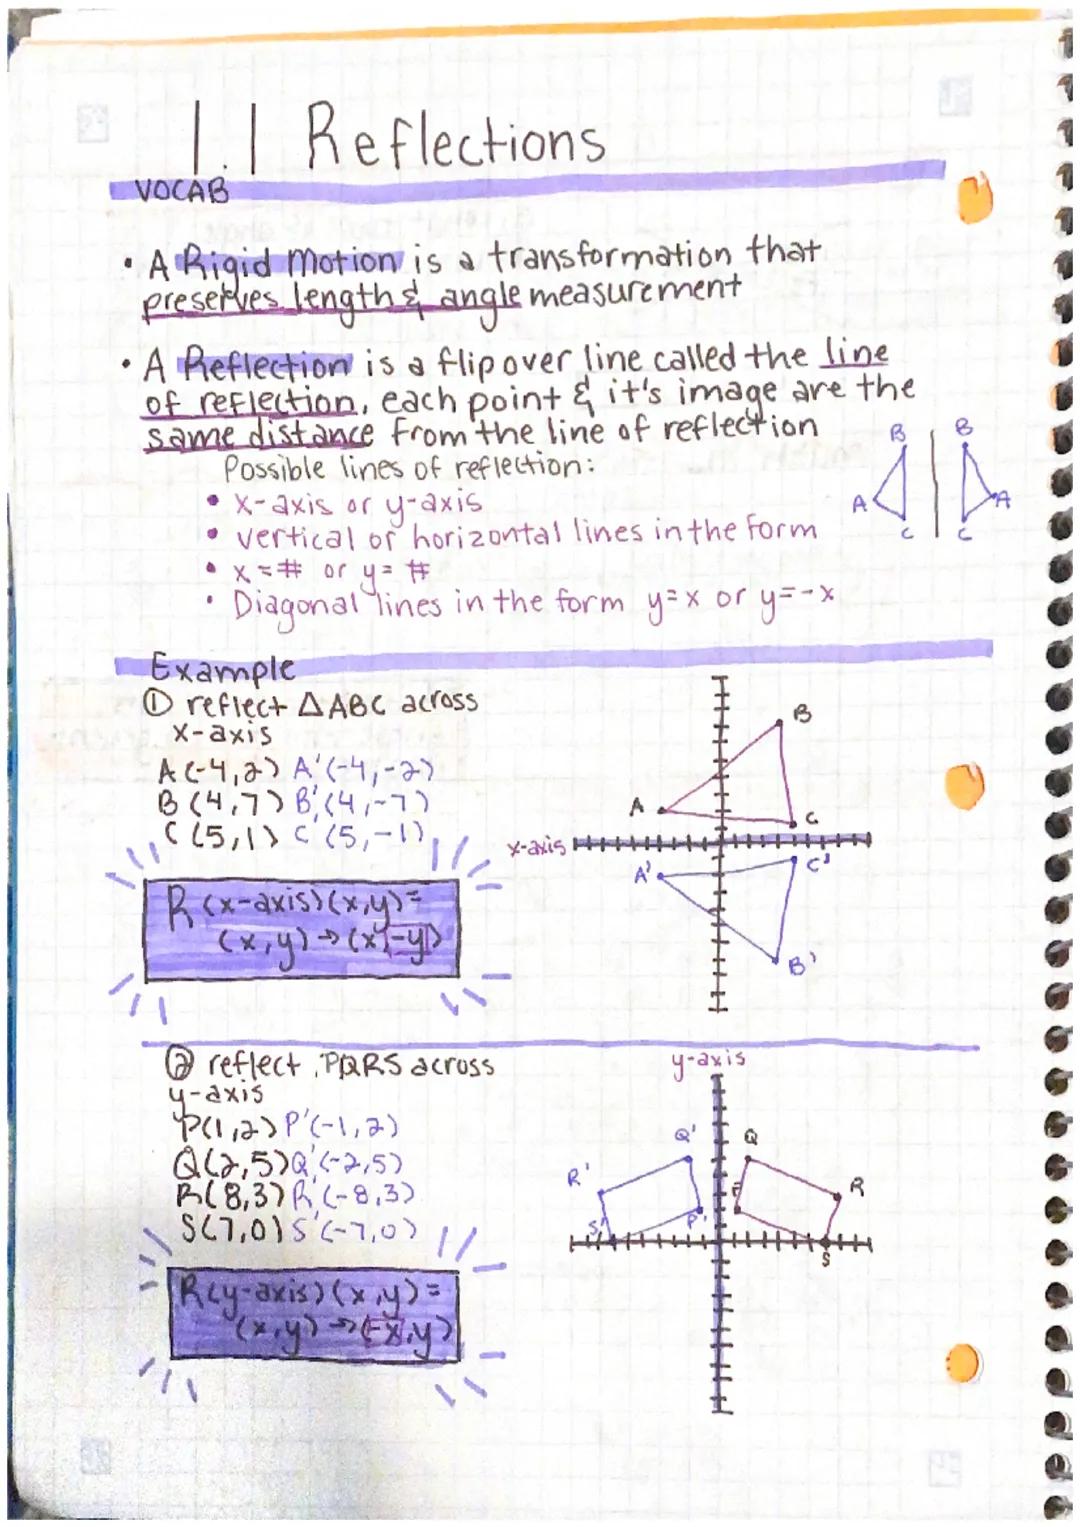 1.1 Reflections
VOCAB
• A Rigid Motion is a transformation that
preserves length & angle measurement
• A Reflection is a flip over line called the line
of reflection, each point & it's image are the
same distance from the line of reflection
Possible lines of reflection:
• x-axis or y-axis
• vertical or horizontal lines in the form
• x = # or y = #
• Diagonal lines in the form y=x or y=-x
B B
A A
C C
Example
① reflect △ABC across
x-axis
A(-4,2) A'(-4,-2)
B(4,7) B'(4,-7)
C(5,1) C'(5,-1)
R(x-axis)(x,y)=
(x,y)→(x,-y)
B
A
C
x-axis
A' C'
B'
② reflect PQRS across
y-axis
P(1,2) P'(-1,2)
Q(2,5) Q'(-2,5)
R(8,3) R'(-8,3)
S(7,0) S'(-7,0)
R(y-axis)(x,y)=
(x,y)→(-x,y)
y-axis
Q' Q
R' R
S' P' P
S